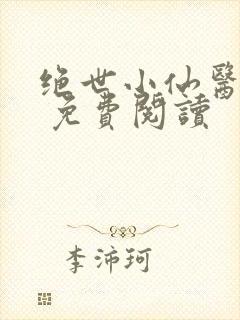 绝世小仙醫
免費閱讀
李沛珂